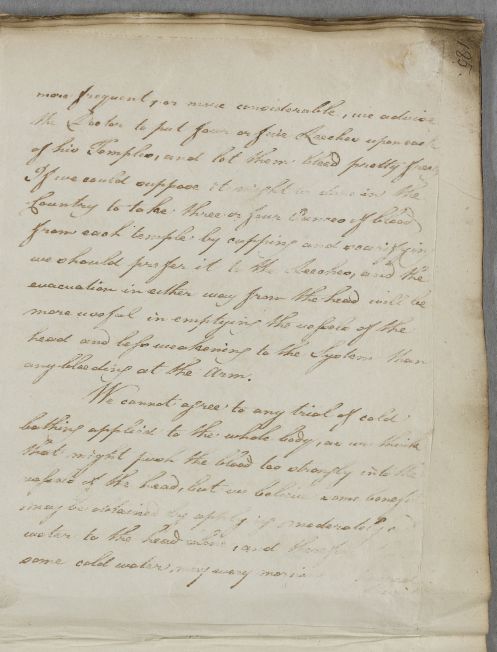 195.
more frequent, or more considerable, we advise
the Doctor to put four or five Leeches upon each
of his Temples, and let them bleed pretty freely
If we could suppose it might be done in the
Country to take three or four Ounces of blood
from each temple by cupping and scarifying
we should prefer it to the Leeches, and the
evacuation in either way from the head will be
more useful in emptying the vessels of the
head and less weakening to the System than
any bleeding at the Arm.
We cannot agree to any trial of cold
bathing applied to the whole body, as we think
that might push the blood too strongly into the
vessels of the head, but we believe some benefit
may be obtained by applying moderately
water to the head alone, and therefore
some cold water, may every morning